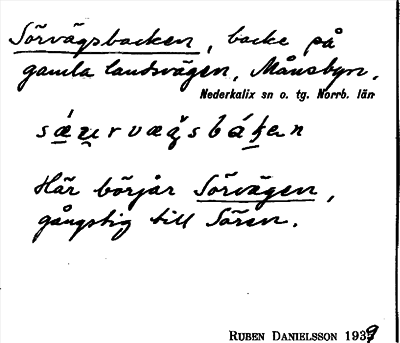 Sörvägsbacken, backe på
gamla landsvägen, Månsbyn,
Nederkalix sn o. tg. Norrb. län
Här börjar Sörvägen,
gångstig till Sören.
RUBEN DANIELSSON 1939